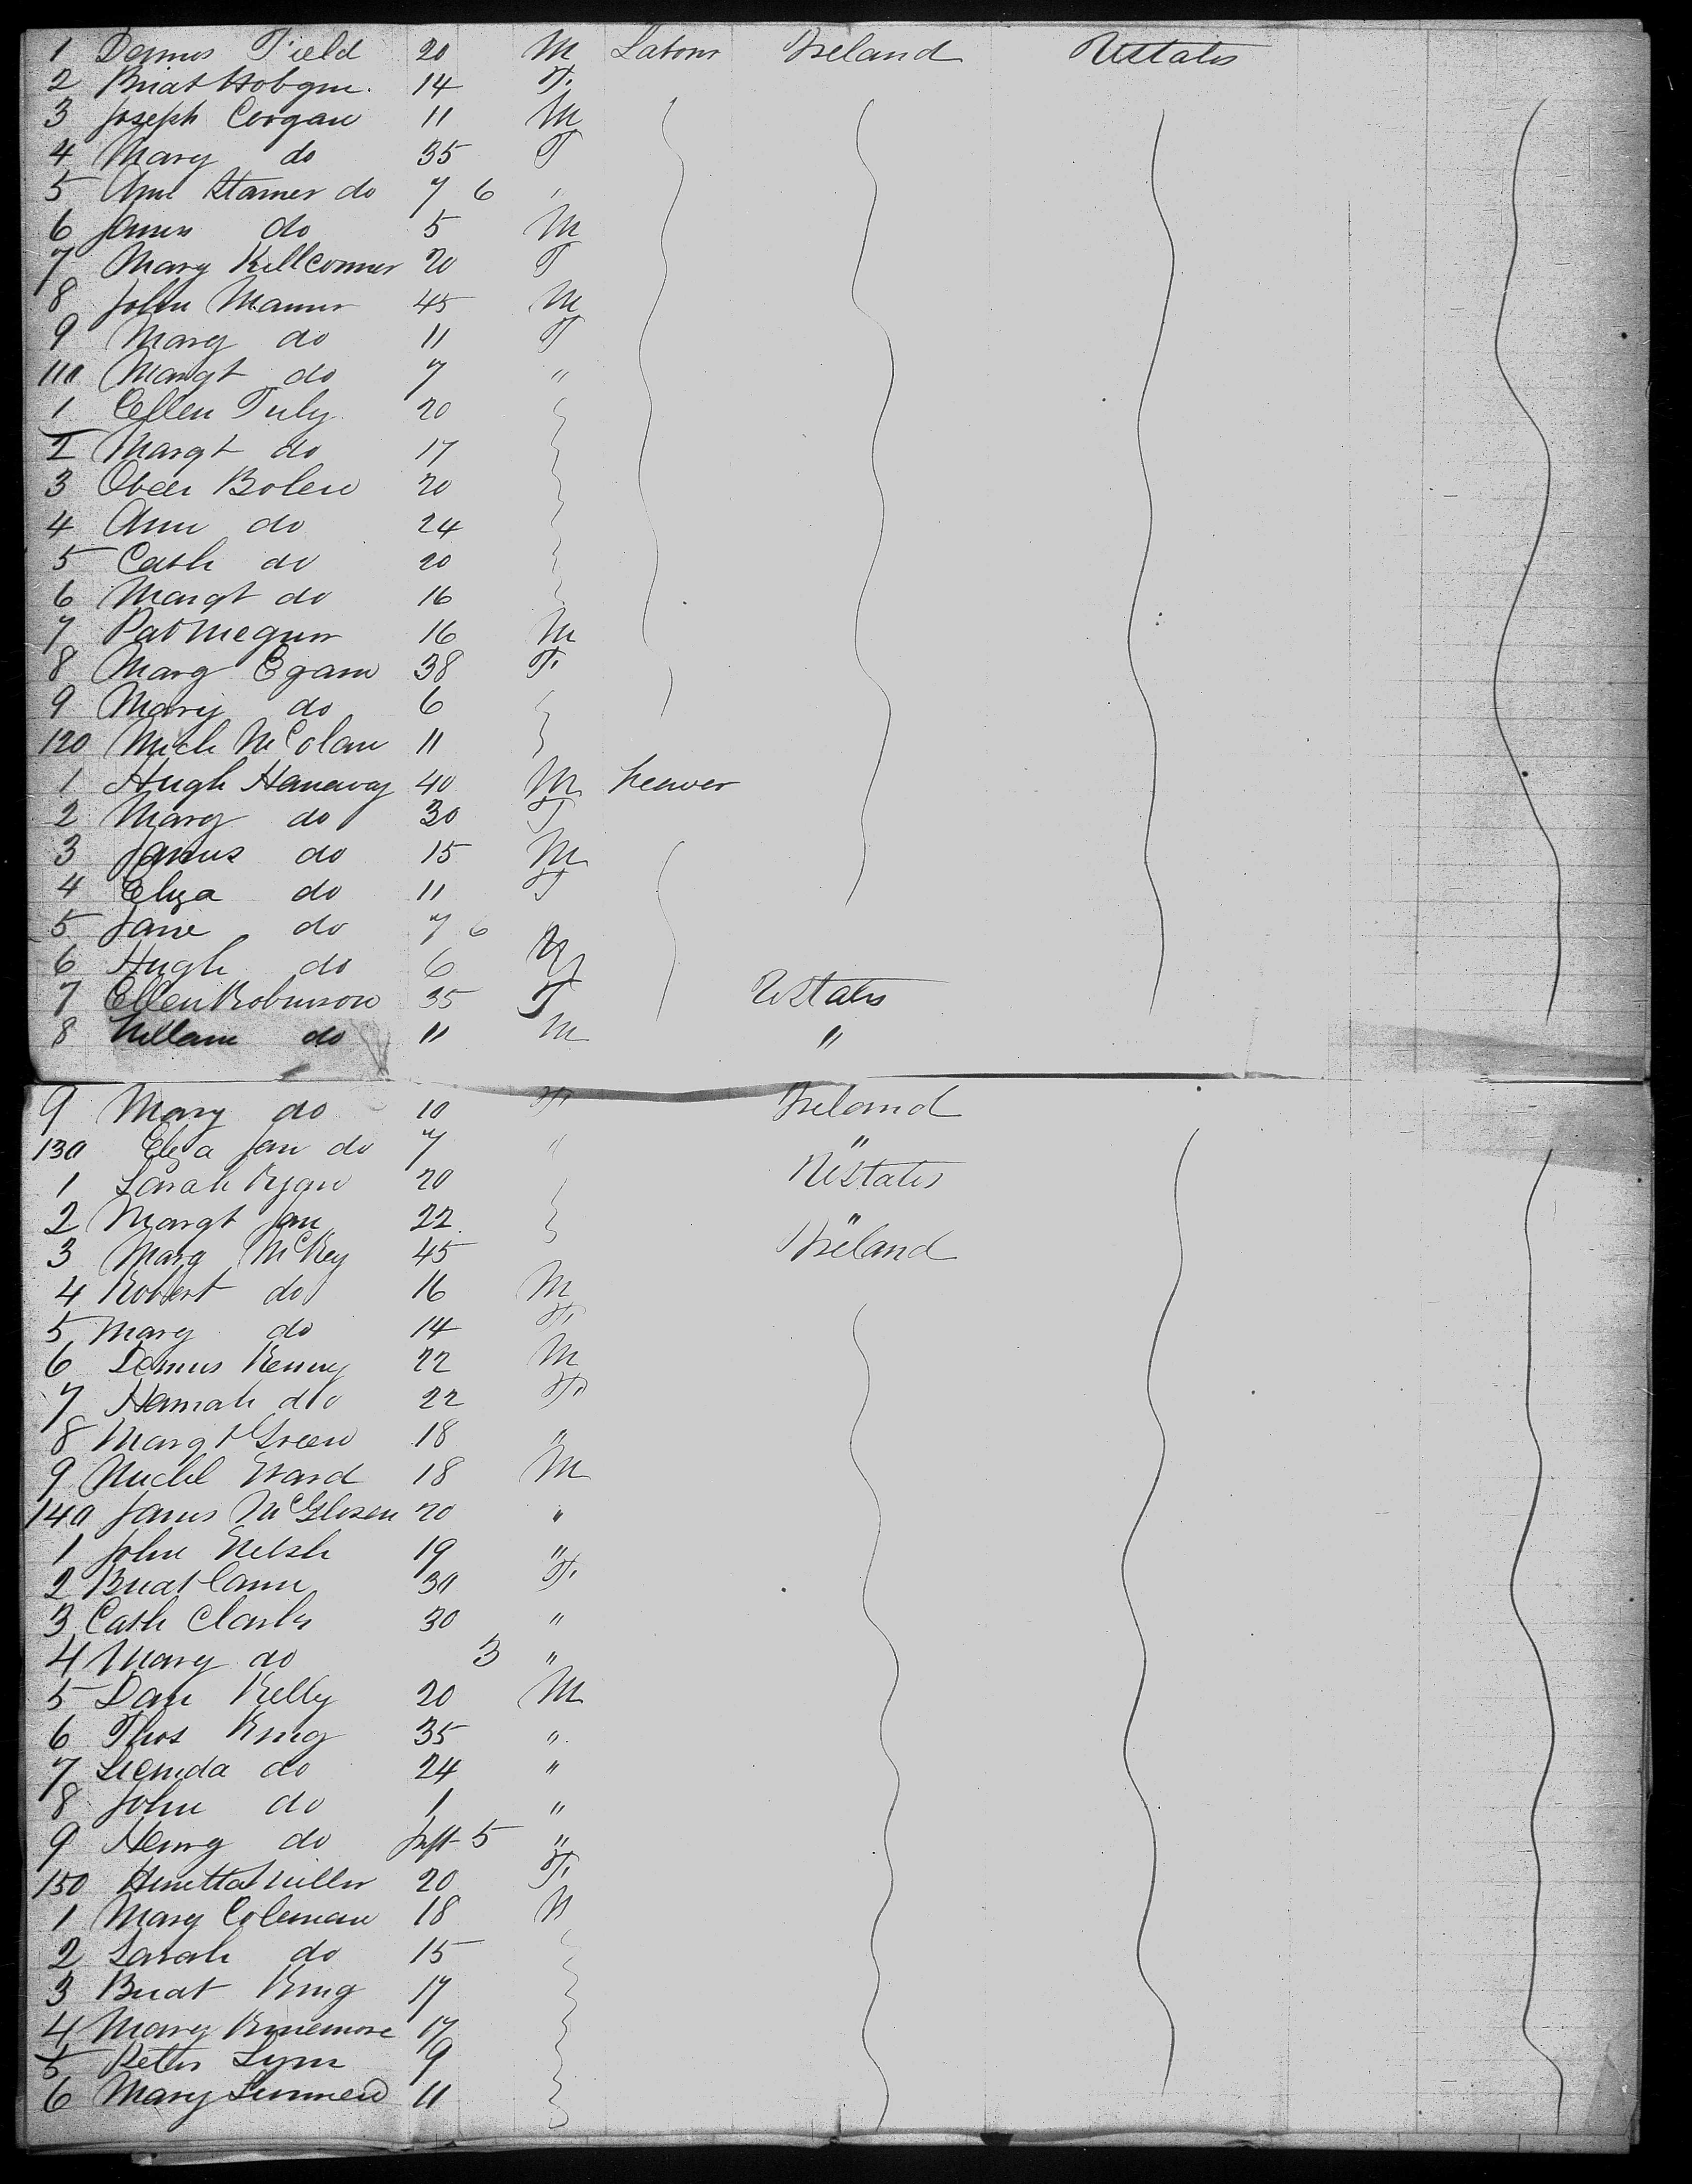 1 Dennis Field 20 M Labour Ireland UStates
2 Bridt Hobgin. 14 F.
3 Joseph Coogan 11 M
4 Mary do 35 F
5 Ann Stamer do 7 6 "
6 James do 5 M
7 Mary Killconner 20 F
8 John Manner 45 M
9 Mary do 11 F
110 Margt do 7 "
1 Ellen Tuly 20
2 Margt do 17
3 Bolen 20
4 Ann do 24
5 Cath do 20
6 Margt do 16
7 Pat 16 M
8 Mary Egan 38 F.
9 Mary do 6
120 Mich McColan 11
1 Hugh Hanaway 40 M Weaver
2 Mary do 30 F
3 James do 15 M
4 Eliza do 11 F
5 Jane do 7 6
6 Hugh do 6 M
7 Ellen Robinson 35 F UStates
8 William do 11 M "
9 Mary do 10 F. Ireland
130 Eliza Jan do 7 " "
1 Sarah Ryan 20 UStates
2 Margt Jan 22 "
3 Mary McKey 45 Ireland
4 Robert do 16 M
5 Mary do 14 F.
6 Dennis Kenny 22 M
7 Hannah do 22 F.
8 Margt Green 18 "
9 Michl Ward 18 M
140 James McGlosen 20 "
1 John Welsh 19 "
2 Bridt Cann 30 F.
3 Cath Clarks 30 "
4 Mary do 3 "
5 Dan Kelly 20 M
6 Thos King 35 "
7 do 24 "
8 John do 1 "
9 Henry do Inft 5 "
150 Henetta Miller 20 F.
1 Mary Coleman 18 "
2 Sarah do 15
3 Bridt King 17
4 Mary Kinemore 17
5 Peter Lynn 9
6 Mary Linnen 11